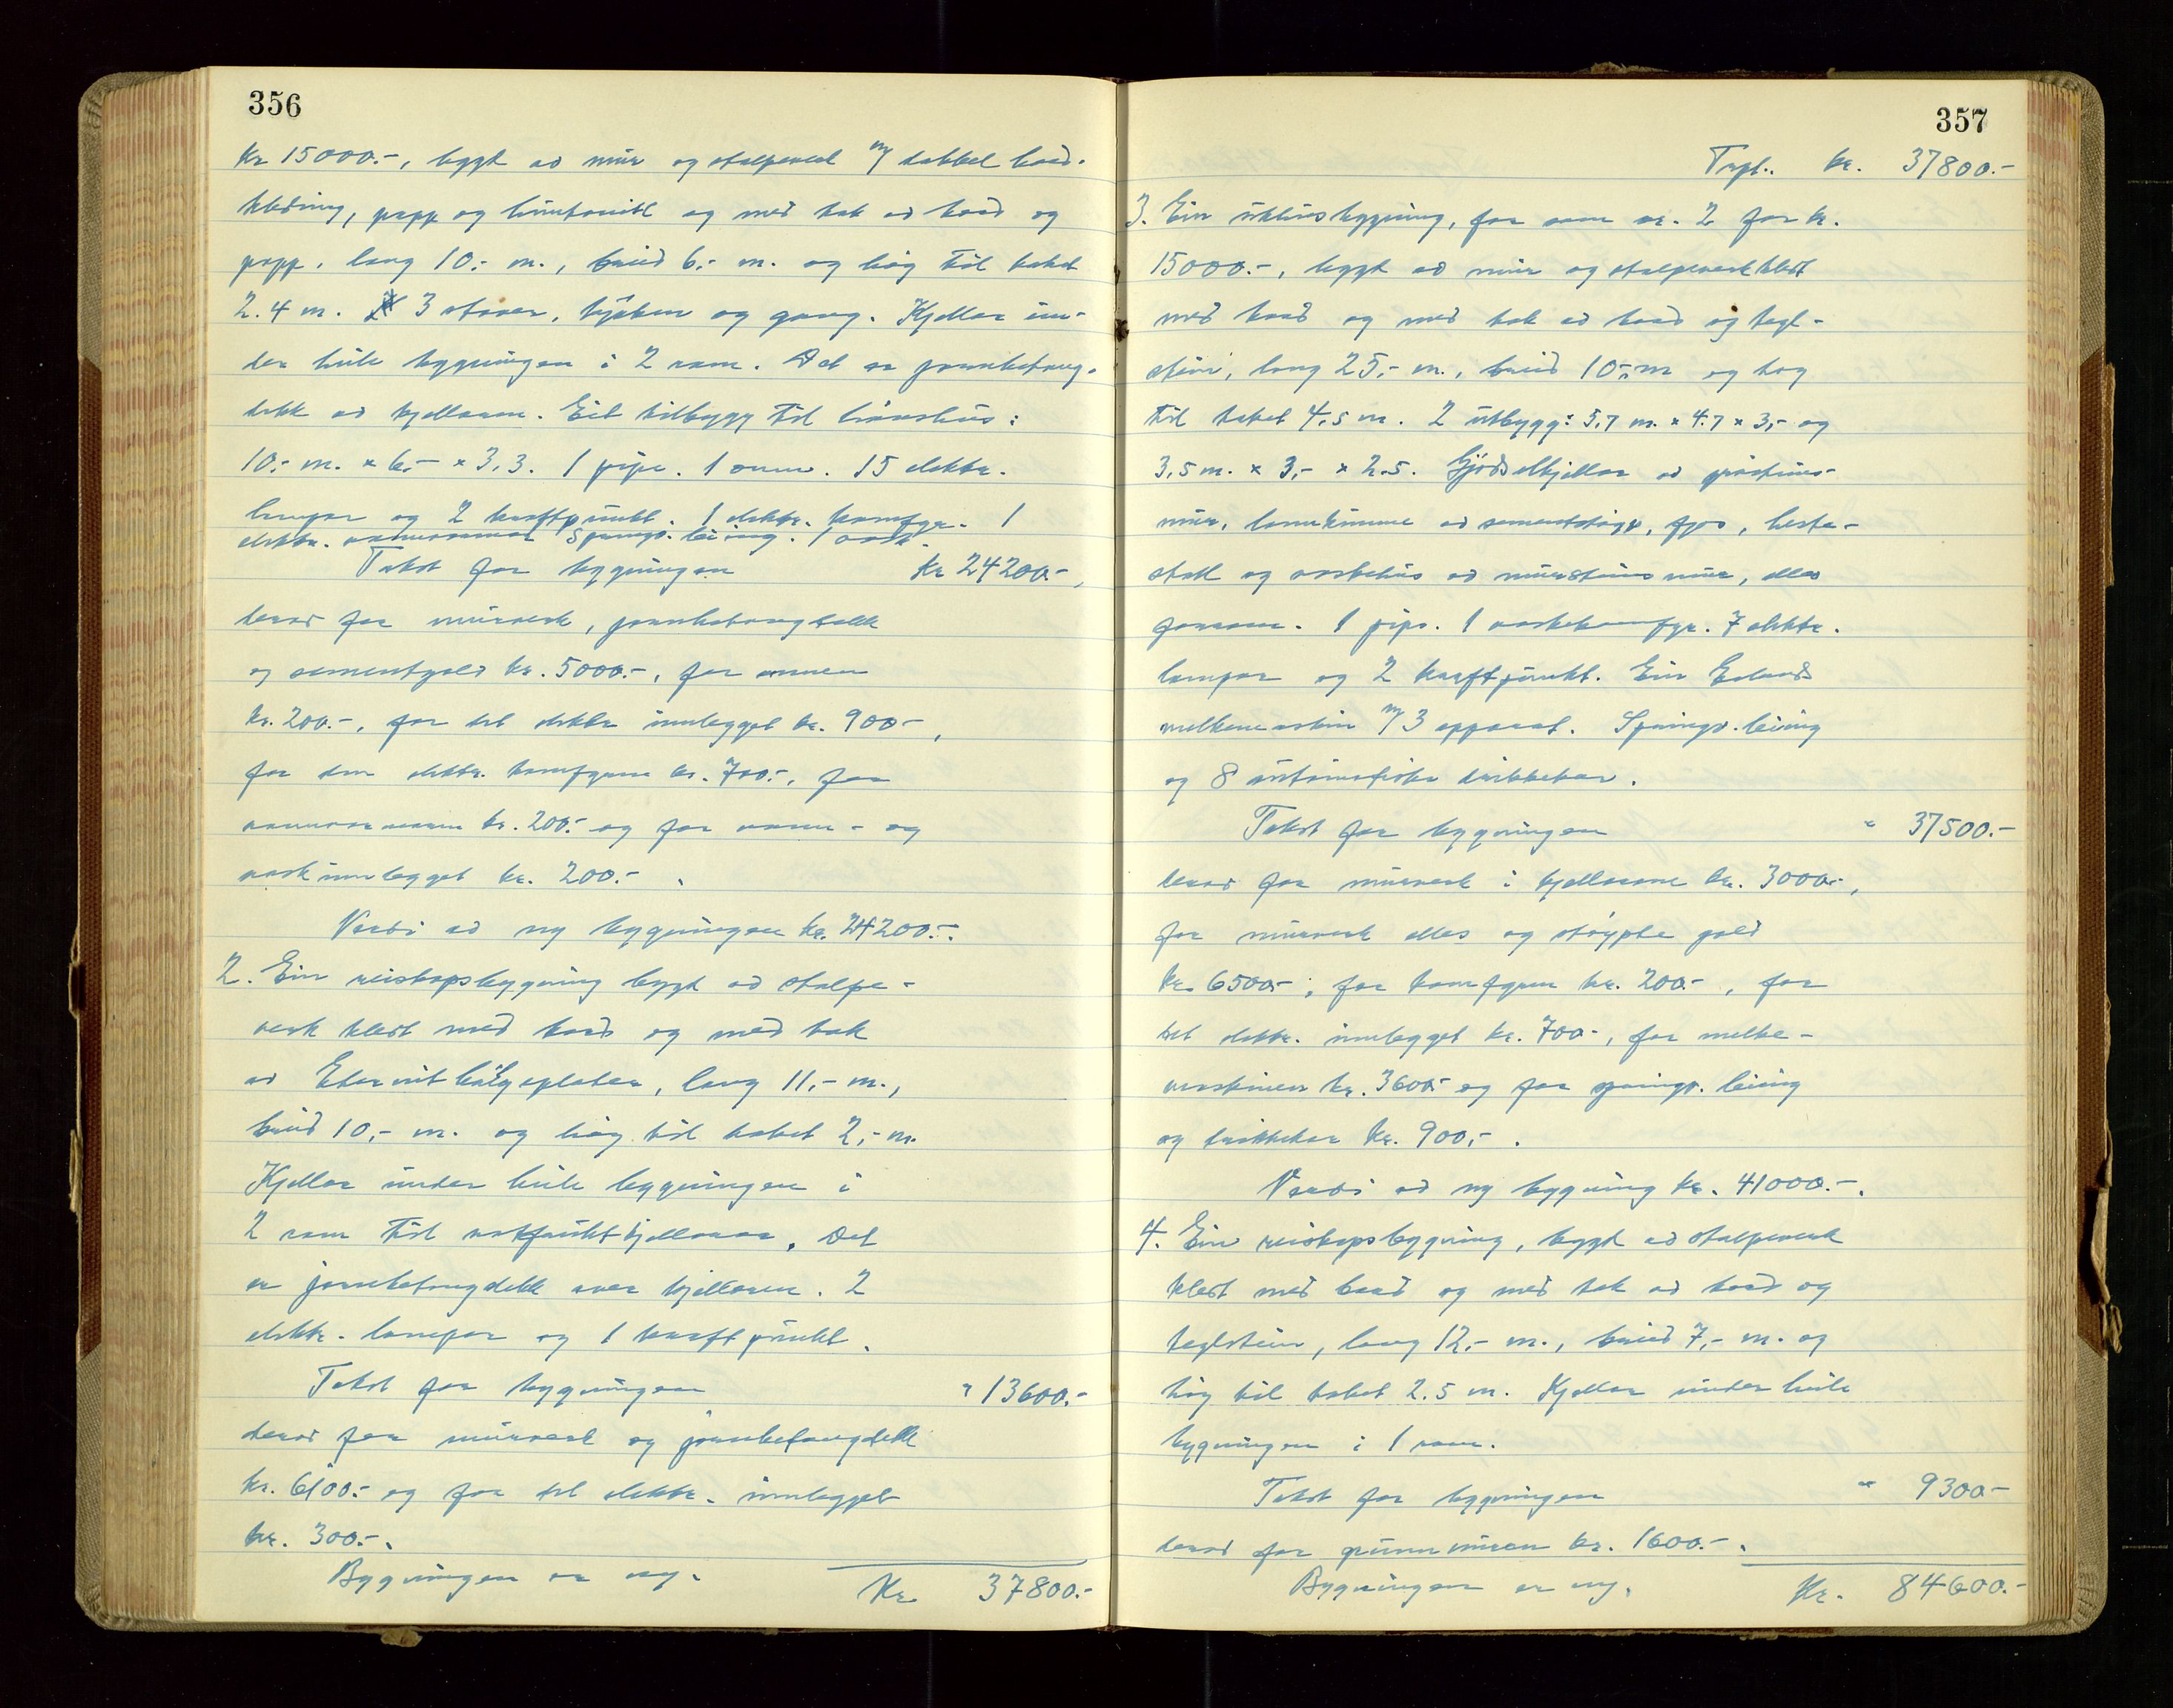 356
Kr 15000.-, bygt av mur og stolpeverk m/ dobbel bord-
kledning, papp og huntonitt og med tak av bord og
papp, lang 10,- m., breid 6,- m. og høg til taket
2.4 m. 3 stover, kjøken og gang. Kjellar un-
der heile bygningen i 2 rom. Det er jarnbetong-
dekk av kjellaren. Eit tilbygg til våningshus:
10,- m. x 6,- x 3,3. 1 pipe. 1 omn. 15 elektr.
lampor og 2 kraftpunkt. 1 elektr. komfyr. 1
elektr. Springv. leiing. 1 vask.
Takst for bygningen kr 24200.-,
derav for murverk, jarnbetongdekk
og sementgolv kr. 5000.-, for omnen
kr. 200.-, for det elektr innlegget kr. 900.-,
for den elektr. komfyren kr. 700.-, for
kr. 200.- og for vann- og
vaskinnlegget kr. 200.-.
Verdi av ny bygningen kr. 24200.-.
2. Ein reiskapsbygning bygt av stolpe-
verk kledt med bord og med tak
av Eternit bølgeplater, lang 11,- m.,
breid 10,- m. og høg til taket 2,- m.
Kjellar under heile bygningen i
2 rom til rotfruktkjellarar. Det
er jarnbetongdekk over kjellaren. 2
elektr. lampor og 1 kraftpunkt.
Takst for bygningen " 13600.-
derav for murverk og jarnbetongdekk
kr. 6100.- og for det elektr. innlegget
kr. 300.-.
Bygningen er ny. Kr 37800.-
357
Trpt. kr. 37800.-
3. Ein uthusbygning, før som nr. 2 for kr.
15000.-, bygt av mur og stolpeverk kledt
med bord og med tak av bord og tegl-
stein, lang 25,- m., breid 10,- m og høg
til taket 4,5 m. 2 utbygg: 5,7 m. x 4.7 x 3,- og
3,5 m. x 3,- x 2.5. Gjødselkjellar av gråsteins-
mur, landkumme av sementstøyp, fjos, heste-
stall og vaskehus av mursteinsmur, elles
forrom. 1 pipe. 1 vaskekomfyr. 7 elektr.
lampor og 2 kraftpunkt. Ein
melkemaskin m/ 3 apparat. Springv. leiing
og 8 automatiske drikkekar.
Takst for bygningen " 37500.-
derav for murverk i kjellarane kr. 3000.-,
for murverk elles og støypte golv
kr. 6500.-, for komfyren kr. 200.-, for
det elektr. innlegget kr. 700.-, for melke-
maskinen kr. 3600.- og for springv. leiing
og drikkekar kr. 900,-.
Verdi av ny bygning kr. 41000.-.
4. Ein reiskapsbygning, bygt av stolpeverk
kledt med bord og med tak av bord og
teglstein, lang 12,- m., breid 7,- m. og
høg til taket 2.5 m. Kjellar under heile
bygningen i 1 rom.
Takst for bygningen " 9300.-
derav for grunnmuren kr. 1600.-.
Bygningen er ny. Kr. 84600.-